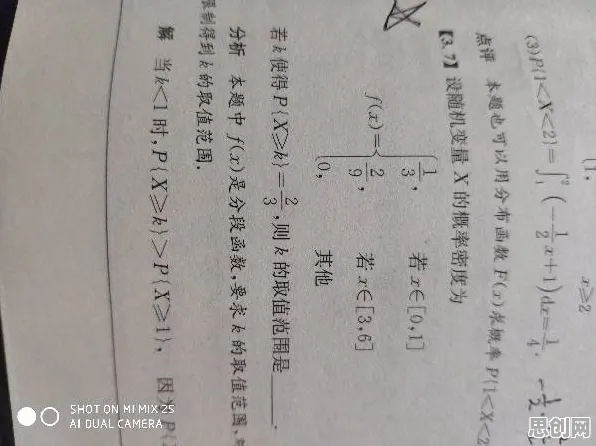 {1, x≥2
(3)P{1<X<2}=∫₁²(-1/2x+1)dx=1/4.
点评 本题也可以用分布函数F(x)求概率P{1<X<2
【3.7】设随机变量X的概率密度为
f(x)={1/3, 若x∈[0,1]
2/9, 若x∈[3,6]
0, 其他
若k使得P{X≥k}=2/3,则k的取值范围是____.
分析 本题中f(x)是分段函数,要求k的取值范围,
限制得到k的取值范围.
解 当k<1时,P{X≥k}>P{X≥1}, 因为P{
SHOT ON MI MIX 2S
AI DUAL CAMERA
思创网